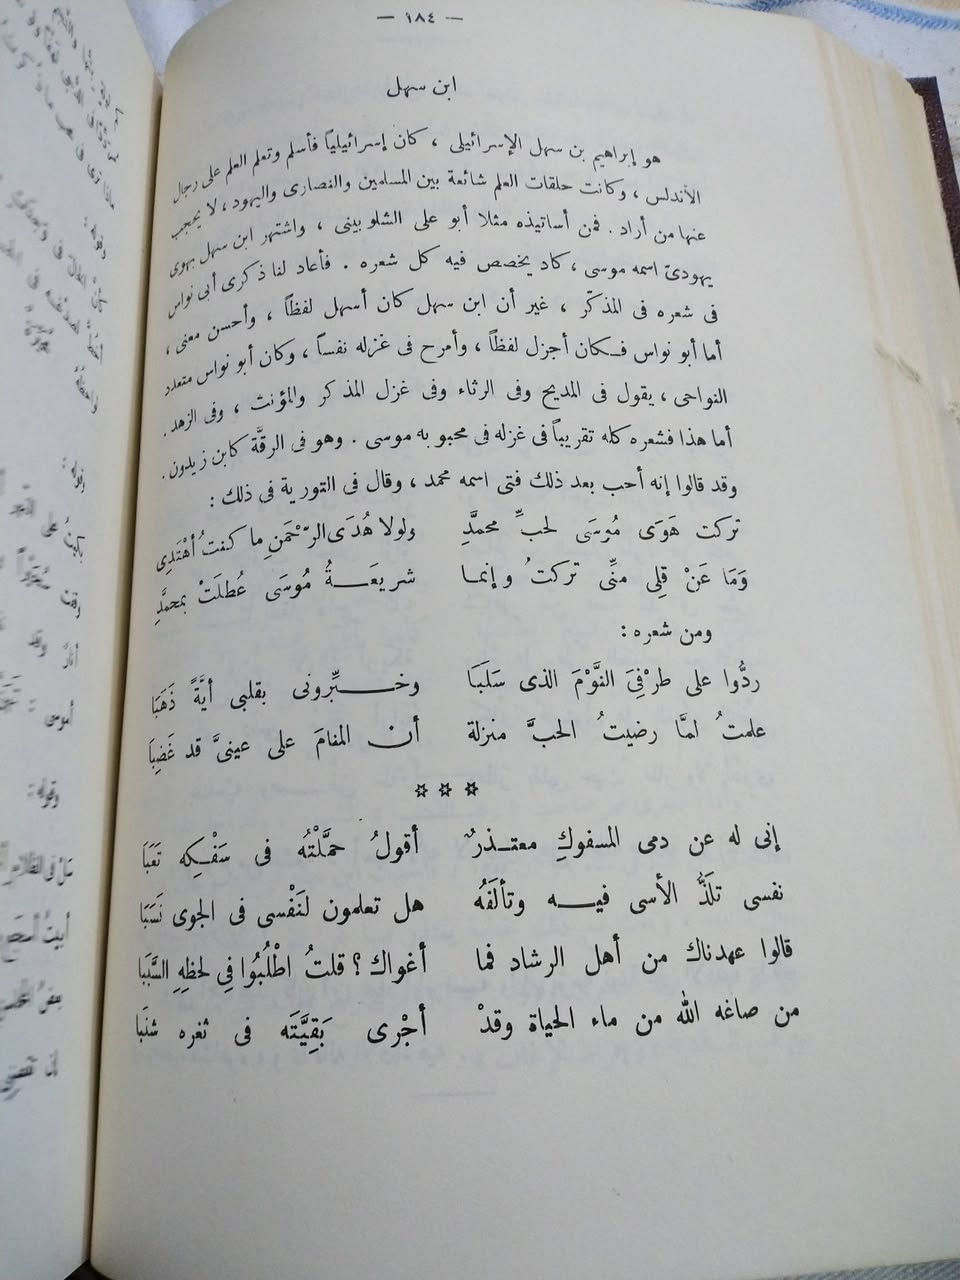 — ١٨٤ —
ابن سهل
هو إبراهيم بن سهل الإسرائيلى ، كان إسرائيلياً فأسلم وتعلم العلم على رجال
الأندلس ، وكانت حلقات العلم شائعة بين المسلمين والنصارى واليهود ، لا يحجب
عنها من أراد . فمن أساتيذه مثلا أبو على الشلوبينى ، واشتهر ابن سهل بهوى
يهودىّ اسمه موسى ، كاد يخصص فيه كل شعره . فأعاد لنا ذكرى أبى نواس
فى شعره فى المذكّر ، غير أن ابن سهل كان أسهل لفظاً ، وأحسن معنى ،
أما أبو نواس فـكان أجزل لفظاً ، وأمرح فى غزله نفساً ، وكان أبو نواس متعدد
النواحى ، يقول فى المديح وفى الرثاء وفى غزل المذكر والمؤنث ، وفى الزهد .
أما هذا فشعره كله تقريباً فى غزله فى محبوبه موسى . وهو فى الرقَّة كابن زيدون .
وقد قالوا إنه أحب بعد ذلك فتى اسمه محمد ، وقال فى التورية فى ذلك :
تركت هَوَى مُوسَى لحبِّ محمدَّدِ ولولا هُدَى الرَّحْمَنِ ما كنتُ أهْتَدِى
وَمَا عَنْ قِلِى منِّى تركتُ وإنما شريعَــةُ مُوسَى عُطلَتْ بمحمَّدِ
ومن شعره :
ردُّوا على طرْفِىَ النَّوْمَ الذى سَلَبَا وخـبِّرونى بقلبى أيَّةً ذَهَبَا
علمتُ لمَّا رضيتُ الحبَّ منزلة أن المنامَ على عينىَّ قد غَضِبَا
* * *
إنى له عن دمى المسفوكِ معتـذرٌ أقولُ حمَّلْتُه فى سَفْـكِه تَعَبَا
نفسى تلَذُّ الأسى فيـه وتألَفَهُ هل تعلمون لنَفْسى فى الجوى نَسَبَا
قالوا عهدناك من أهل الرشاد فما أغواك ؟ قلتُ اطْلُبُوا فِى لحظِهِ السَّبَبَا
من صاغه الله من ماء الحياة وقدْ أجْرى بَقِيَّتَه فى ثغره شنَبَا